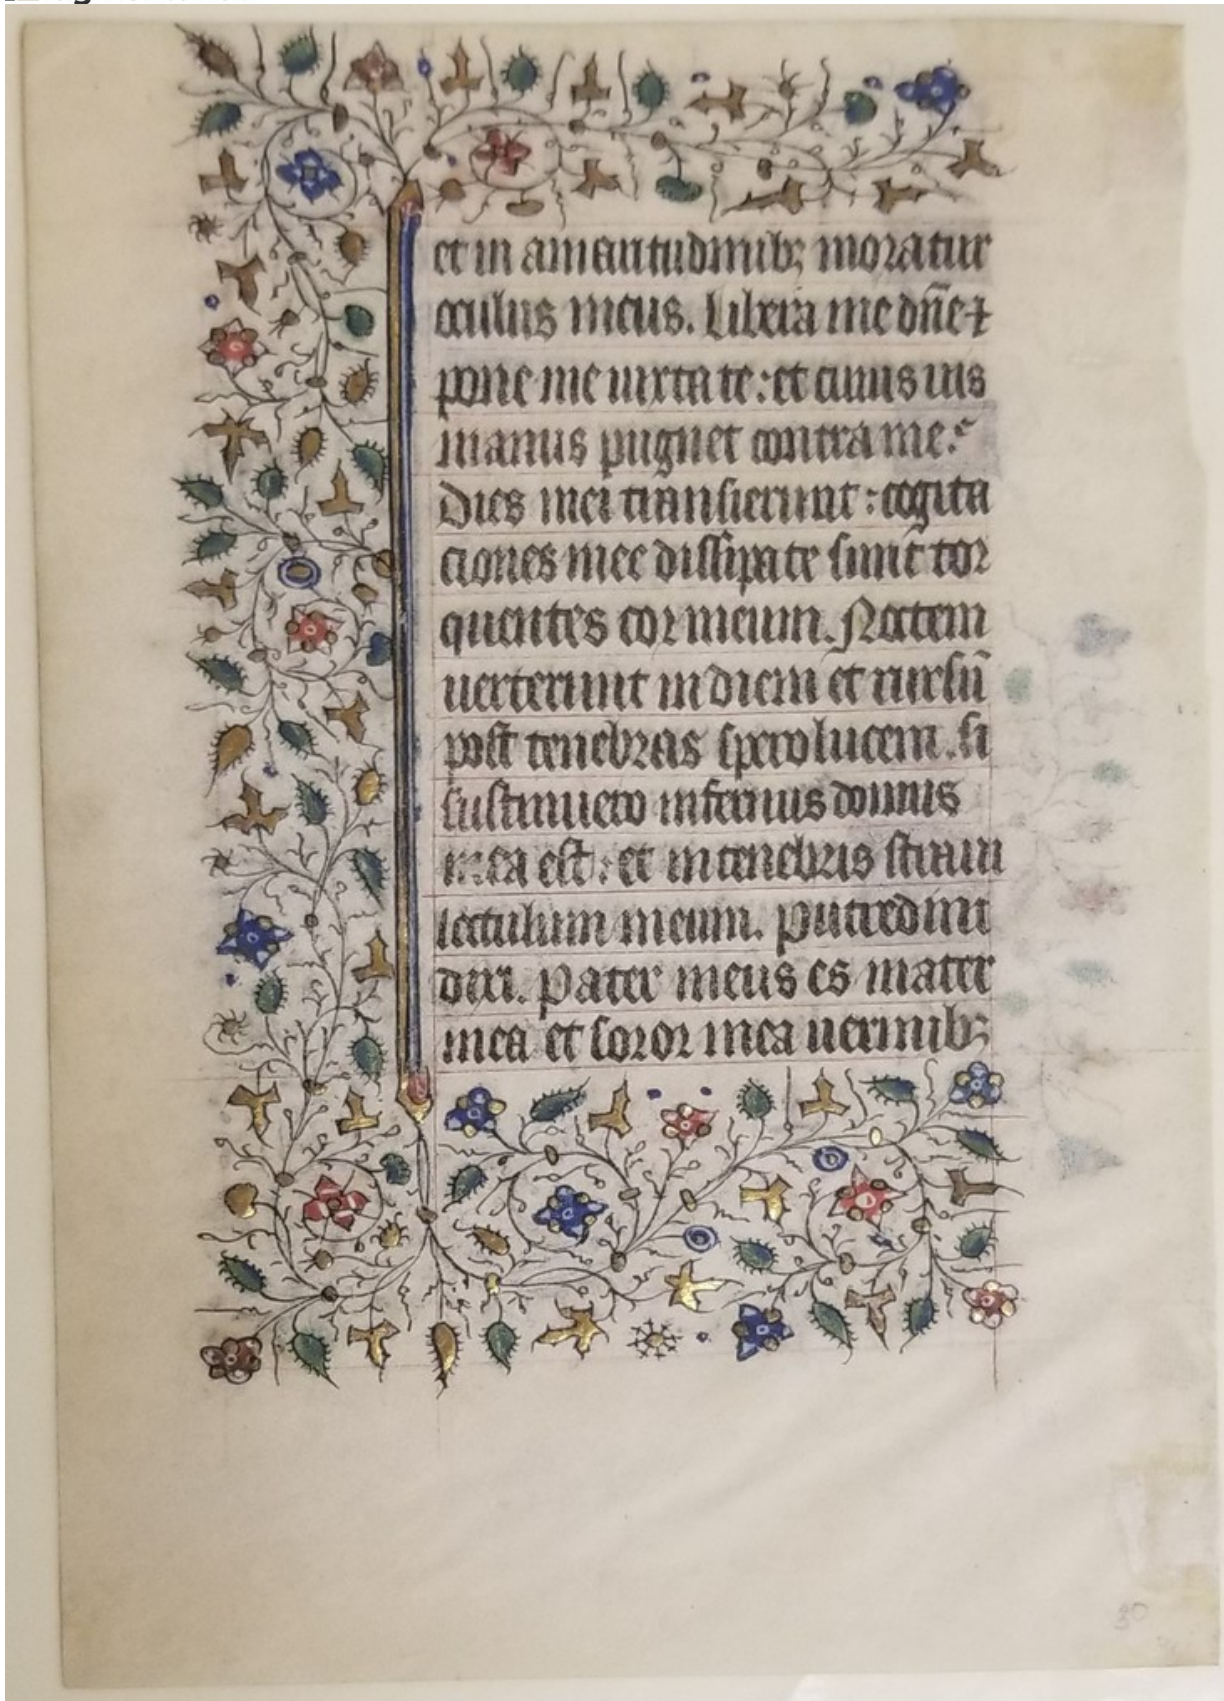 et in amaritudinibꝫ moratur
oculus meus. Libera me dn̄e ⁊
pone me iuxta te: et cuius uis
manus pugnet contra me.
Dies mei transierunt: cogita
ciones mee dissipate sunt tor
quentes cor meum. Noctem
uerterunt in diem et rursū
post tenebras spero lucem. si
sustinuero infernus domus
mea est: et in tenebris straui
lectulum meum. Putredini
dixi. Pater meus es mater
mea et soror mea uermibꝫ
30